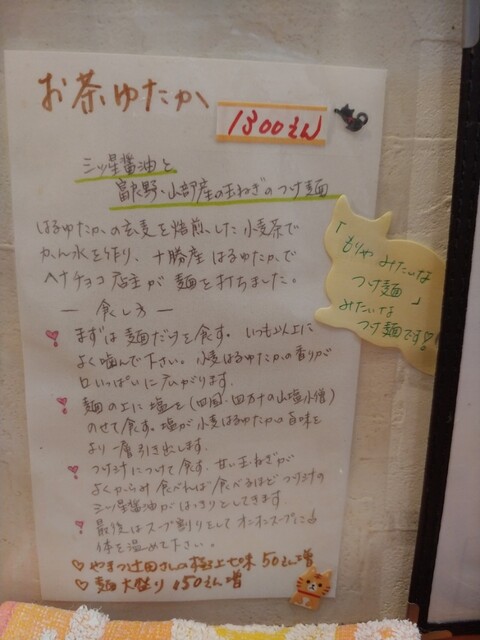 お茶ゆたか
1300えん
三ツ星醤油と
富良野・山部産の玉ねぎのつけ麺
はるゆたかの玄麦を焙煎した小麦茶で
かん水を作り、十勝産はるゆたかで
ヘナチョコ店主が麺を打ちました。
― 食し方 ―
まずは麺だけを食す。いつも以上に
よく噛んで下さい。小麦はるゆたかの香りが
口いっぱいに広がります。
麺の上に塩を(四国・四万十の山塩小僧)
のせて食す。塩が小麦はるゆたかの旨味を
より一層引き出します。
つけ汁につけて食す。甘い玉ねぎが
よくからみ食べれば食べるほどつけ汁の
三ツ星醤油がはっきりとしてきます
最後はスープ割りをしてオニオンスープに
体を温めて下さい。
やまつ辻田さんの極上七味 50えん増
麺大盛り 150えん増
「もりやみたいな
つけ麺」
みたいな
つけ麺です